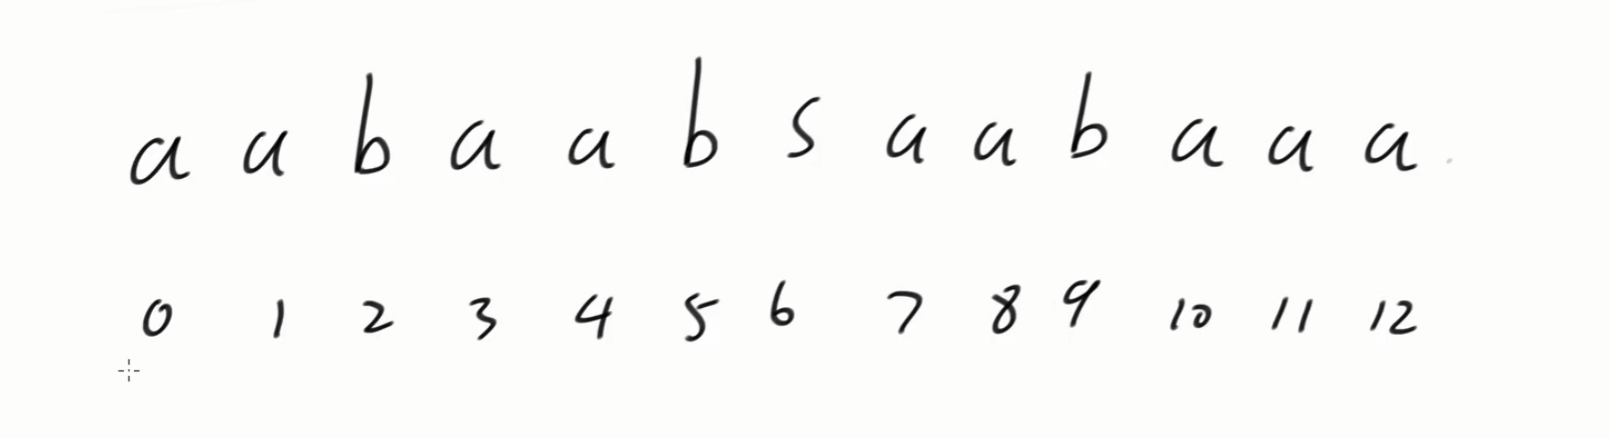 a a b a a b s a a b a a a
0 1 2 3 4 5 6 7 8 9 10 11 12